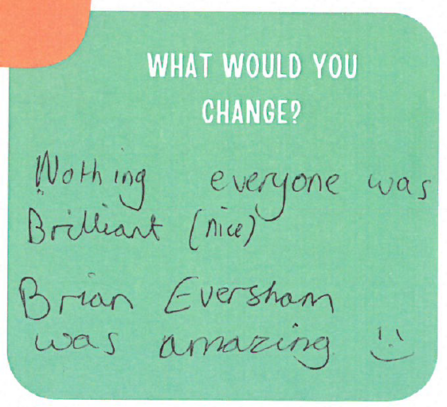 WHAT WOULD YOU
CHANGE?
Nothing everyone was
Brilliant (nice)
Brian Eversham
was amazing :)